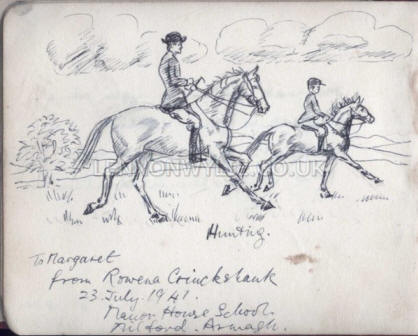 LENNONWYLIE.CO.UK
Hunting.
To Margaret
from Rowena Cruickshank
23. July. 1941.
Manor House School.
Milford. Armagh.